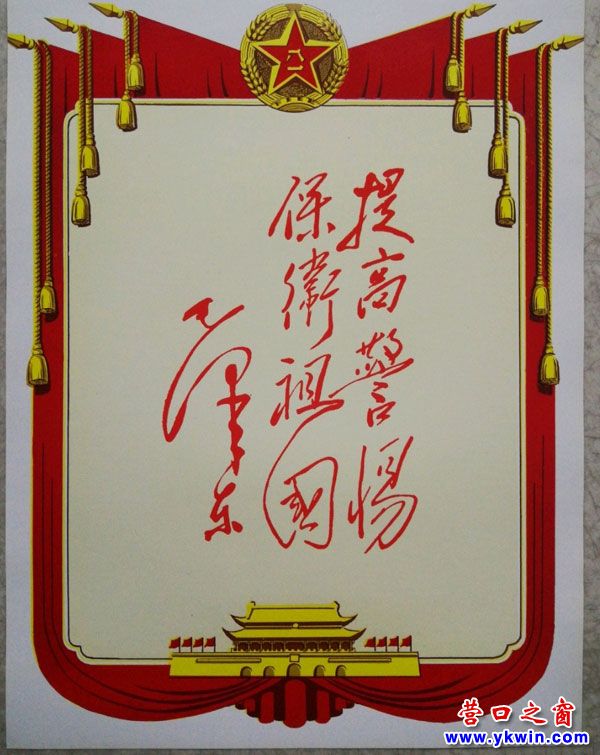 八一
提高警惕
保衛祖國
毛泽东
营口之窗
www.ykwin.com